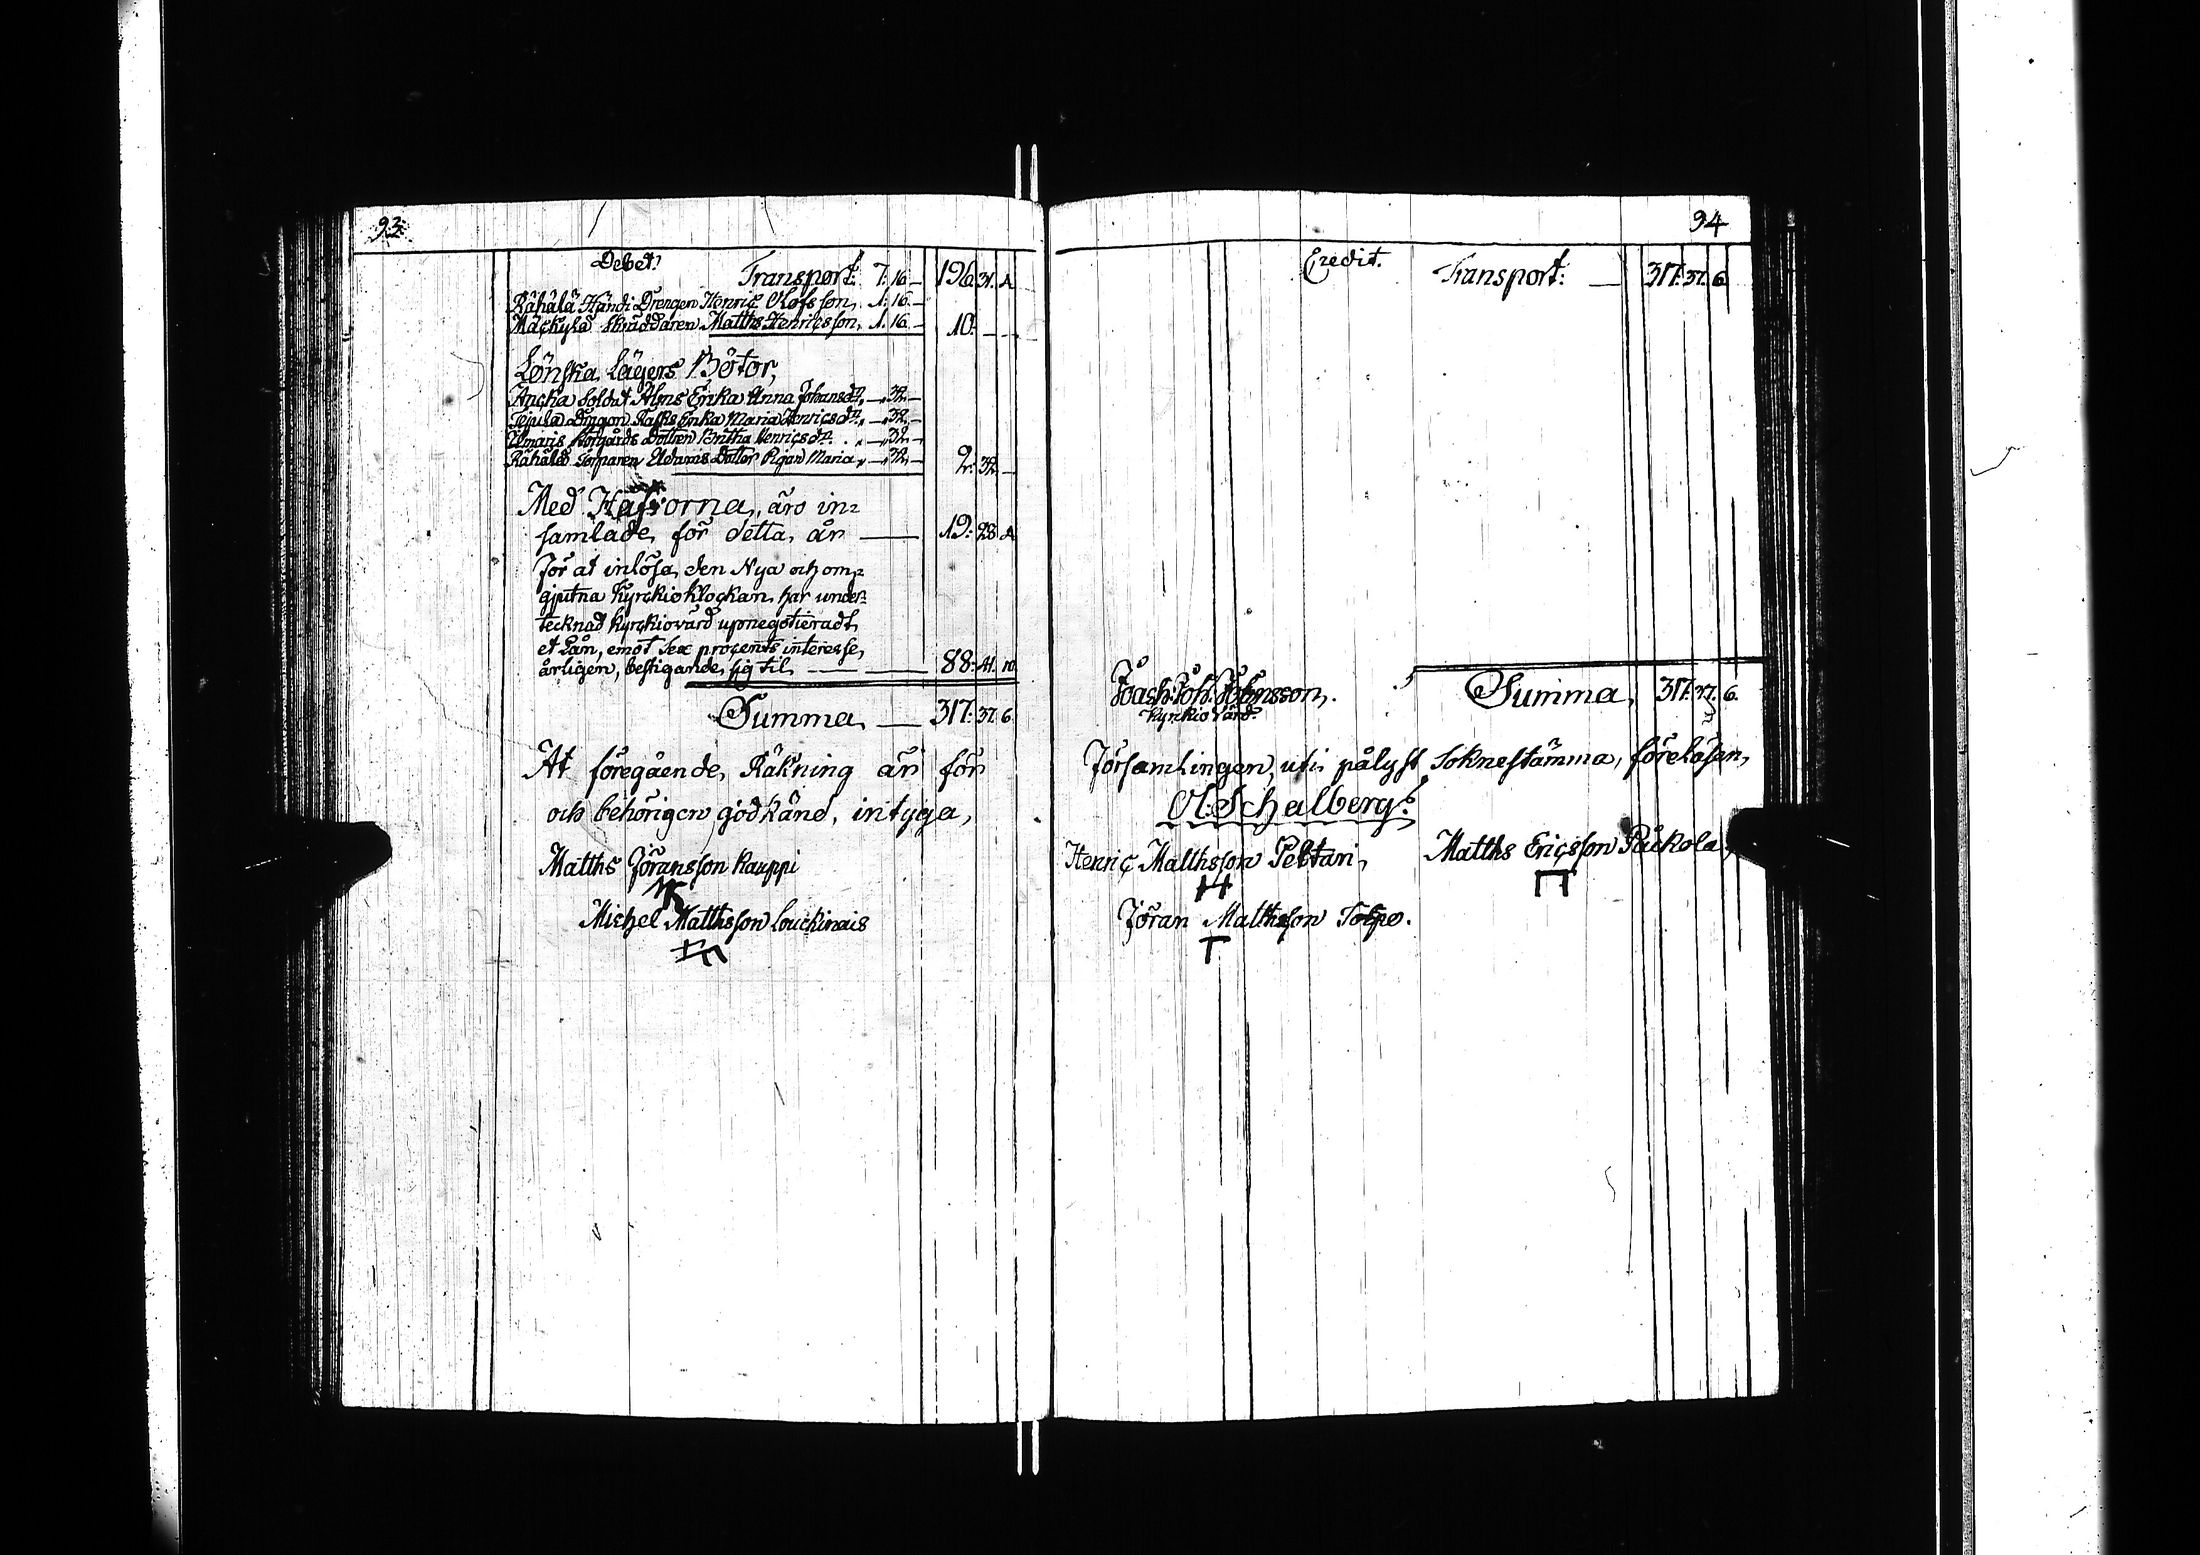 93.
Debet.
Transport. 7. 16. — 196. 31. 4
Rähälä Händi Drengen Henric Olofsson, 1. 16. —
Mäckylä Skräddaren Matths Henricsson, 1. 16. — 10. — —
Lönska Lägers Böter,
Ancka Soldat Alms Enka Anna Johansdr, — 32. —
Dragon Enka Maria Henricsdr, — 32. —
Dottren Britha Henricsdr. — 32. —
Rähälä Torparen Adams Dotter Maria, — 32. — 2. 32. —
Med Håfvorna, äro in-
samlade, för detta, år — 19: 28. 4
För at inlösa, den Nya och om-
gjutna Kyrckio Klockan, har under-
tecknad Kyrckiovärd upnegotieradt,
et Lån, emot Sex procents interesse,
årligen, bestigande, sig til — 88: 41. 10.
Summa — 317: 37. 6.
At föregående, Räkning är för
och behörigen godkänd, intyga,
Matths Jöransson Kauppi
Michel Matthsson Louckinais
94
Credit.
Transport: — 317. 37. 6.
Summa, 317. 37. 6.
Joach: Joh: Johnsson,.
Kyrkio Värd.
Församlingen, uti, pålyst Soknestämma, föreläsen,
Ol: Schalberg.
Henric Matthsson Peltari,
Matths Ericsson Päckola,
Jöran Matthsson Tolpo.